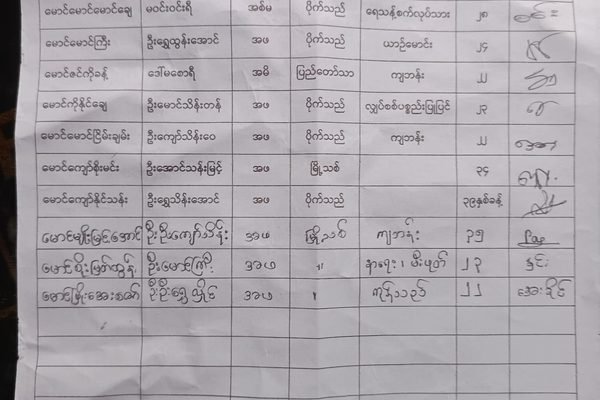 မောင်မောင်မောင်ချေ မဝင်းဝင်းရီ အစ်မ ပိုက်သည် ရေသန့်စက်လုပ်သား ၂၈
မောင်မောင်ကြီး ဦးရွှေထွန်းအောင် အဖ ပိုက်သည် ယာဉ်မောင်း ၂၄
မောင်ဇင်ကိုခန့် ဒေါ်မစောရီ အမိ ပြည်တော်သာ ကျဘန်း ၂၂
မောင်ကိုနိုင်ချေ ဦးမောင်သိန်းတန် အဖ ပိုက်သည် လျှပ်စစ်ပစ္စည်းပြုပြင် ၂၃
မောင်မောင်ငြိမ်းချမ်း ဦးကျော်သိန်းဝေ အဖ ပိုက်သည် ကျဘန်း ၂၂
မောင်ကျော်စိုးမင်း ဦးအောင်သန်းမြင့် အဖ မြို့သစ် ၃၄
မောင်ကျော်နိုင်သန်း ဦးရွှေသိန်းအောင် အဖ ပိုက်သည် ၃၉နှစ်ခန့်
မောင်မျိုးမြင့်အောင် ဦးဦးကျော်သိန်း အဖ မြို့သစ် ကျဘန်း ၃၅
ဦးမောင်ကြီး အဖ 〃 ၂၃
အဖ 〃 ၂၂ အေးနိုင်